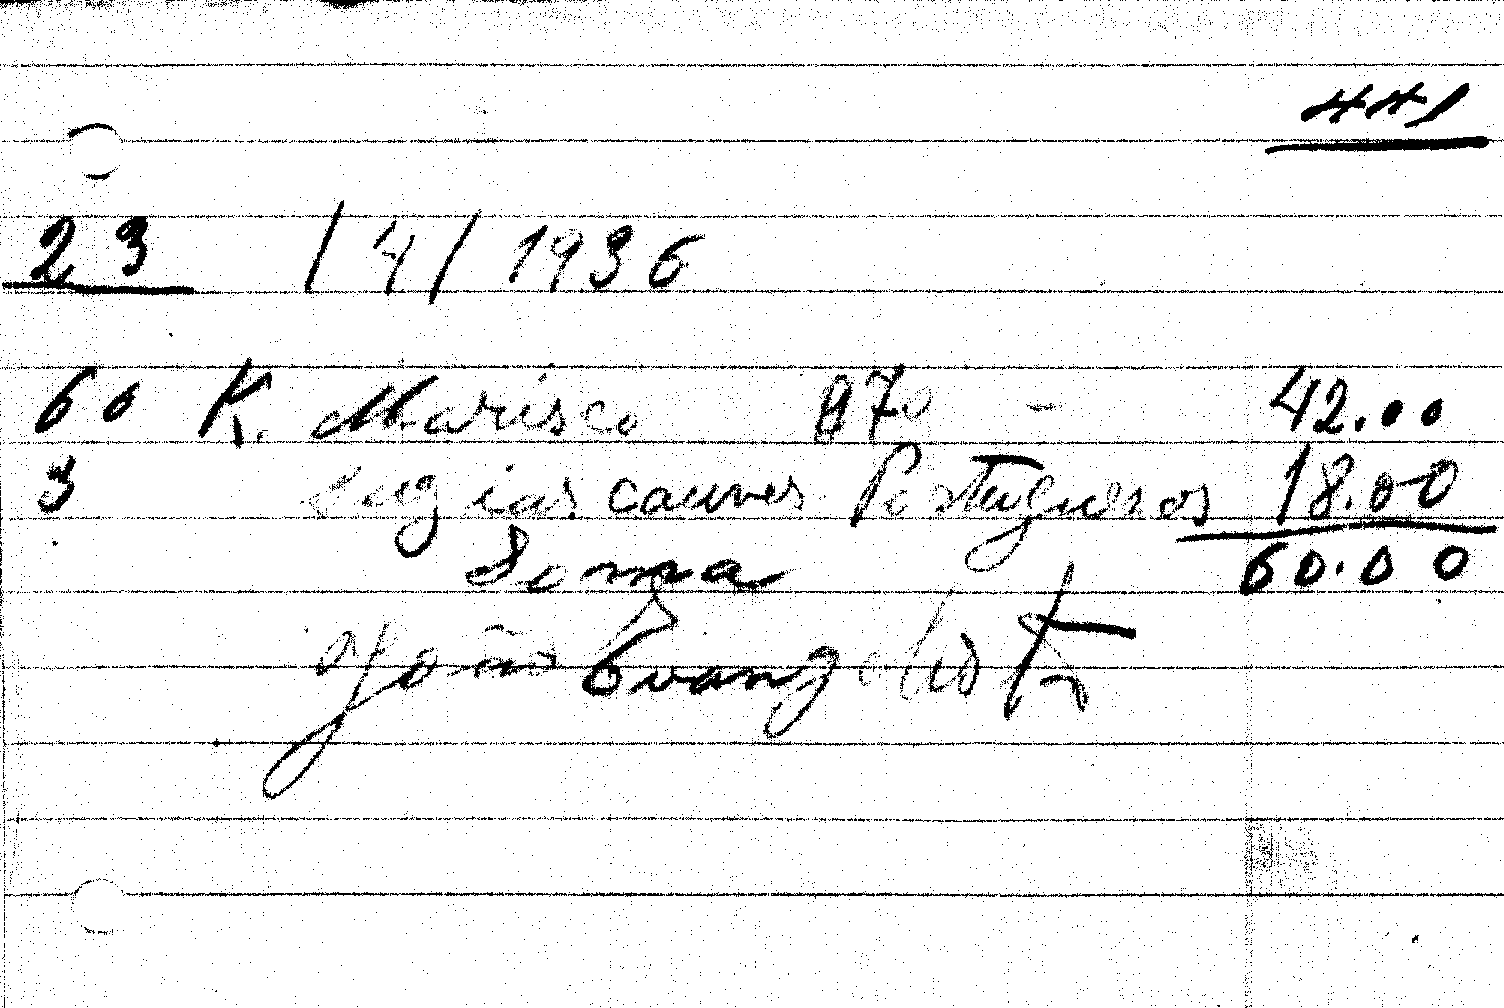 441
23 / 4 / 1936
60 K. Marisco 070 - 42.00
3 caunes Portugueros 18.00
Soma 60.00
João Evangelista